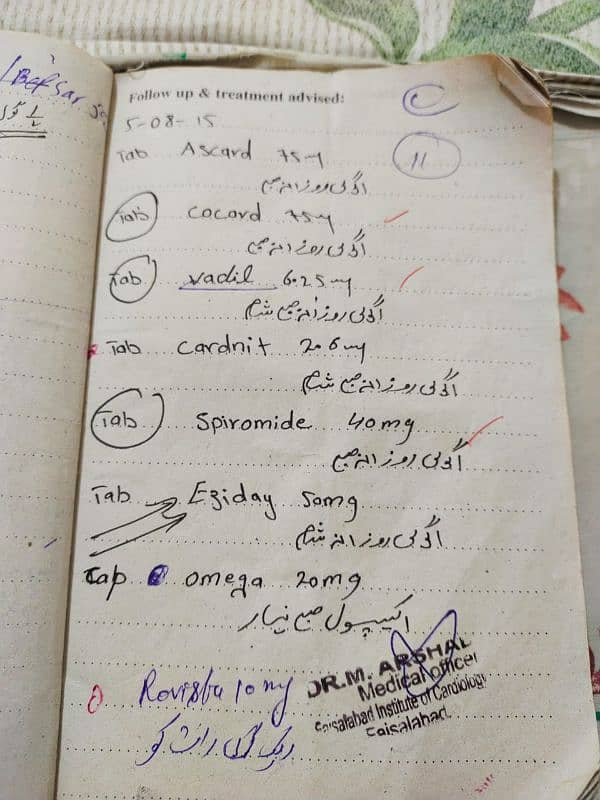 Follow up & treatment advised:
5-08-15
Tab Ascard 75mg
11
1 گولی روزانہ صبح
Tab Cocard 75mg
1 گولی روزانہ صبح
Tab Vadil 6.25mg
1 گولی روزانہ صبح شام
Tab Cardnit 2.6mg
1 گولی روزانہ صبح شام
Tab Spiromide 40mg
1 گولی روزانہ صبح
Tab Eziday 50mg
1 گولی روزانہ شام
Cap Omega 20mg
1 کیپسول صبح نہار
Rovista 10mg
ایک گولی رات کو
DR.M. ARSHAL
Medical officer
Faisalabad Institute of Cardiology
Faisalabad.